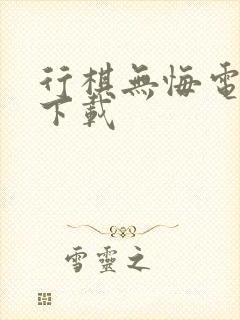 行棋無悔電
下載
雪靈之